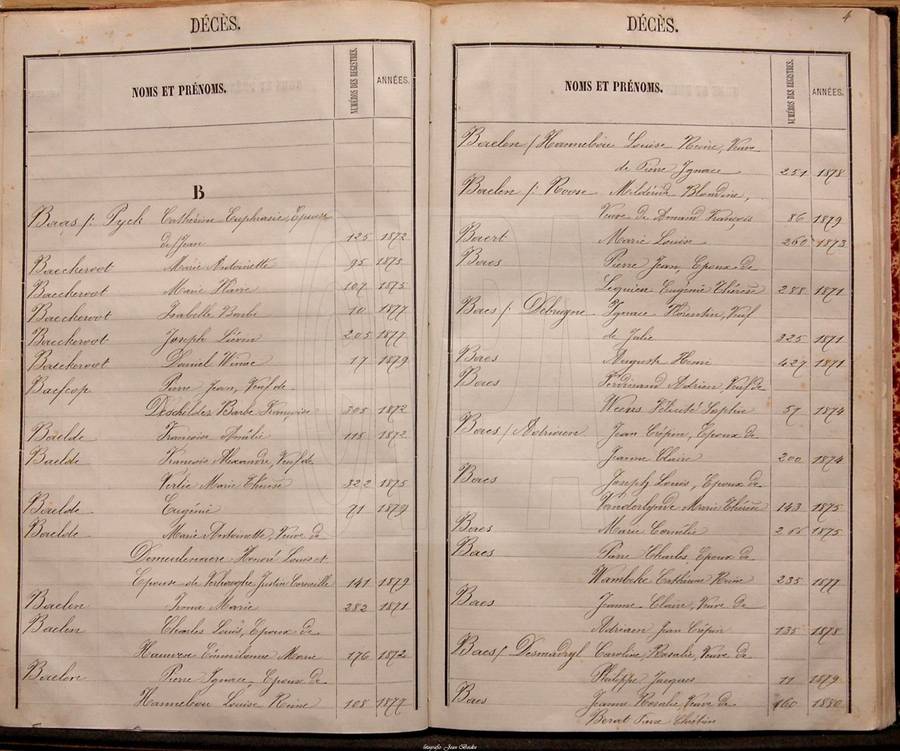 DÉCÈS.
NOMS ET PRÉNOMS. NUMÉROS DES REGISTRES ANNÉES.
B
Baas /: Pyck Cathérine Euphrasie, Epouse
de Jean 125 1872
Baeckeroot Marie Antoinette 95 1875
Baeckeroot Marie 107 1875
Baeckeroot Isabelle Barbe 10 1877
Baeckeroot Joseph Liévin 205 1877
Baeckeroot Daniel Winoc 17 1879
Baefcop Pierre Jean, Veuf de
Deschelder Barbe Françoise 305 1872
Baelde Françoise Amélie 118 1872
Baelde François Alexandre, Veuf de
Marie Thérèse 322 1875
Baelde Eugénie 91 1879
Baelde Marie Antoinette, Veuve de
Demeulenaere Honoré Louis et
Epouse de Justin Corneille 141 1879
Baelen Marie 282 1871
Baelen Charles Louis, Epoux de
176 1872
Baelen Pierre Ignace, Epoux de
Hannebou Louise Reine 108 1877
DÉCÈS. 4
NOMS ET PRÉNOMS. NUMÉROS DES REGISTRES. ANNÉES.
Baelen / Hannebou Louise Reine, Veuve
de Pierre Ignace 251 1878
Baelen /: Roose Mildénide Blondine,
Veuve de Amand François 86 1879
Baert Marie Louise 260 1873
Baes Pierre Jean, Epoux de
Lequien Eugénie Thérèse 288 1871
Baes / Debruyne Ignace Florentin, Veuf
de Julie 325 1871
Baes Auguste Henri 427 1871
Baes Ferdinand Adrien Veuf de
Wens Félicité Sophie 57 1874
Baes / Adriaen Jean Crépin, Epoux de
Jeanne Claire 200 1874
Baes Joseph Louis, Epoux de
Vanderlynde Marie Thérèse 143 1875
Baes Marie Cornélie 1875
Baes Pierre Charles, Epoux de
Wambeke Cathérine Reine 235 1877
Baes Jeanne Claire, Veuve de
Adriaen Jean Crépin 135 1878
Baes / Desmadryl Caroline, Rosalie, Veuve de
Philippe Jacques 11 1879
Baes Jeanne Rosalie Veuve de 160 1880
fotografie Jean Baeke